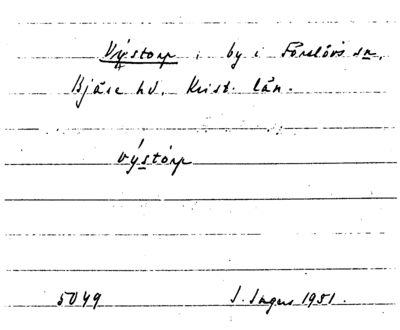 Vȳstorp : by i Förslövs sn,
Bjäre hd. Krist. län.
výstórp
5049 I. Ingers 1951.